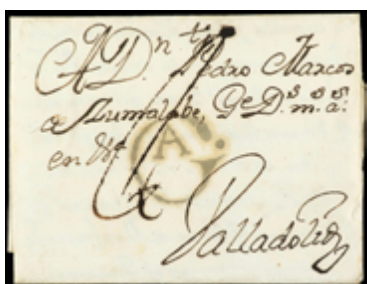 A D.n Pedro Marcos
a Zumalabe, Ge D.s m.s a.s
en
A
Valladolid